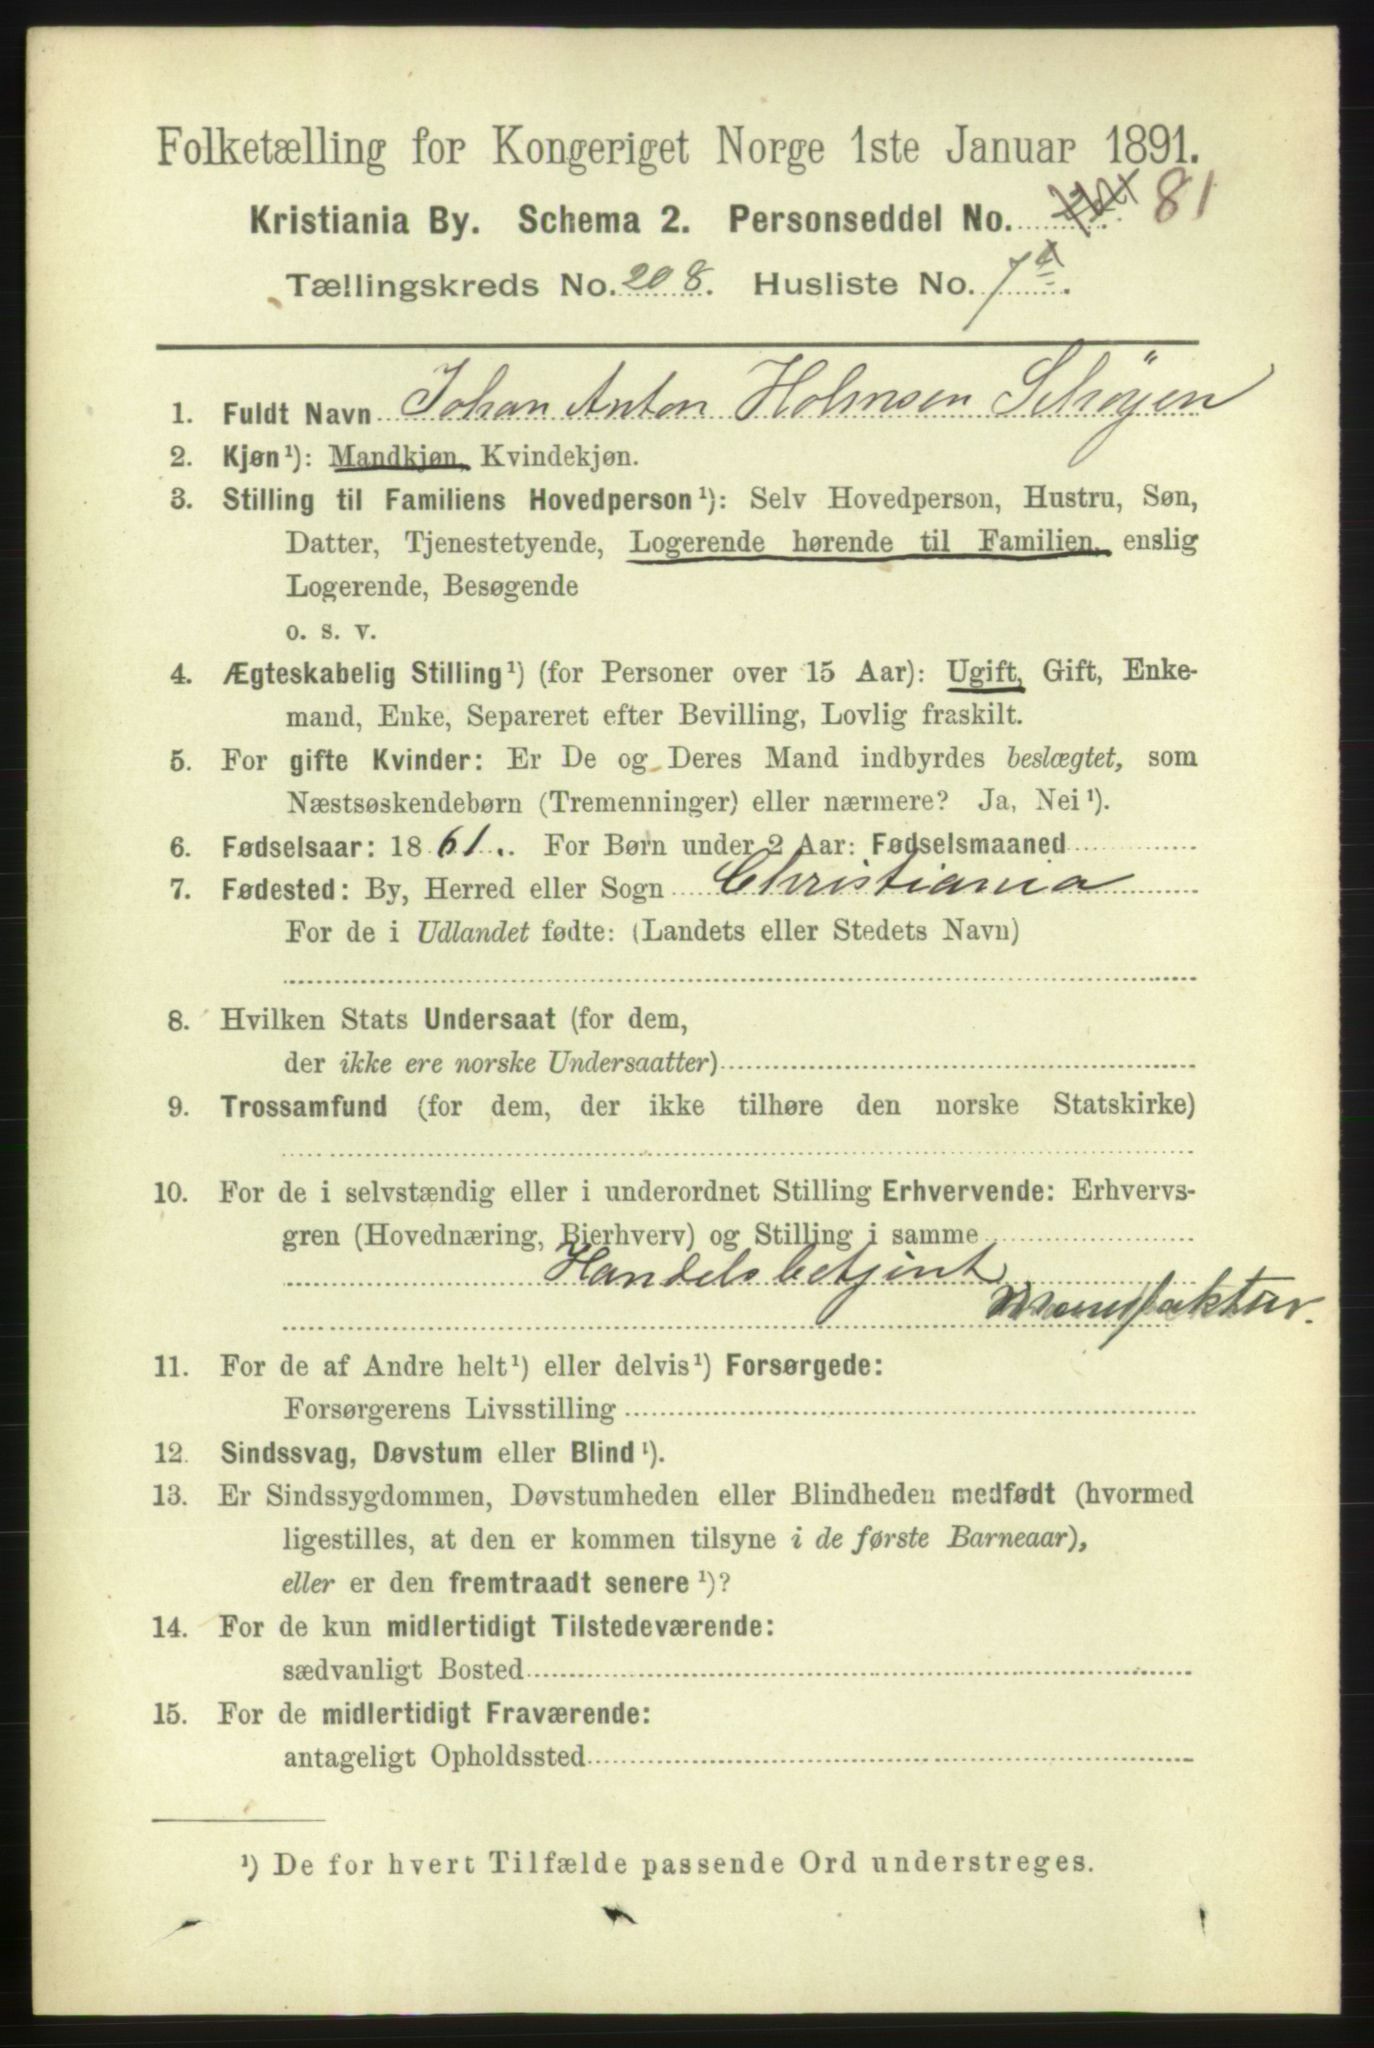 Folketælling for Kongeriget Norge 1ste Januar 1891.
Kristiania By. Schema 2. Personseddel No. 81
Tællingskreds No. 208. Husliste No. 7a.
1. Fuldt Navn Johan Anton Holmsen Schöyen
2. Kjøn¹): Mandkjøn, Kvindekjøn.
3. Stilling til Familiens Hovedperson¹): Selv Hovedperson, Hustru, Søn,
Datter, Tjenestetyende, Logerende hørende til Familien, enslig
Logerende, Besøgende
o. s. v.
4. Ægteskabelig Stilling¹) (for Personer over 15 Aar): Ugift, Gift, Enke-
mand, Enke, Separeret efter Bevilling, Lovlig fraskilt.
5. For gifte Kvinder: Er De og Deres Mand indbyrdes beslægtet, som
Næstsøskendebørn (Tremenninger) eller nærmere? Ja, Nei¹).
6. Fødselsaar: 1861. For Børn under 2 Aar: Fødselsmaaned
7. Fødested: By, Herred eller Sogn Christiania
For de i Udlandet fødte: (Landets eller Stedets Navn)
8. Hvilken Stats Undersaat (for dem,
der ikke ere norske Undersaatter)
9. Trossamfund (for dem, der ikke tilhøre den norske Statskirke)
10. For de i selvstændig eller i underordnet Stilling Erhvervende: Erhvervs-
gren (Hovednæring, Bierhverv) og Stilling i samme
Handelsbetjent
Manufaktur.
11. For de af Andre helt¹) eller delvis¹) Forsørgede:
Forsørgerens Livsstilling
12. Sindssvag, Døvstum eller Blind¹).
13. Er Sindssygdommen, Døvstumheden eller Blindheden medfødt (hvormed
ligestilles, at den er kommen tilsyne i de første Barneaar),
eller er den fremtraadt senere¹)?
14. For de kun midlertidigt Tilstedeværende:
sædvanligt Bosted
15. For de midlertidigt Fraværende:
antageligt Opholdssted
¹) De for hvert Tilfælde passende Ord understreges.